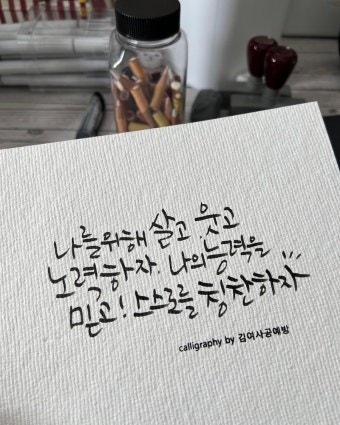 나를위해 살고 웃고
노력하자. 나의능력을
믿고! 스스로를 칭찬하자
calligraphy by 김여사공예방